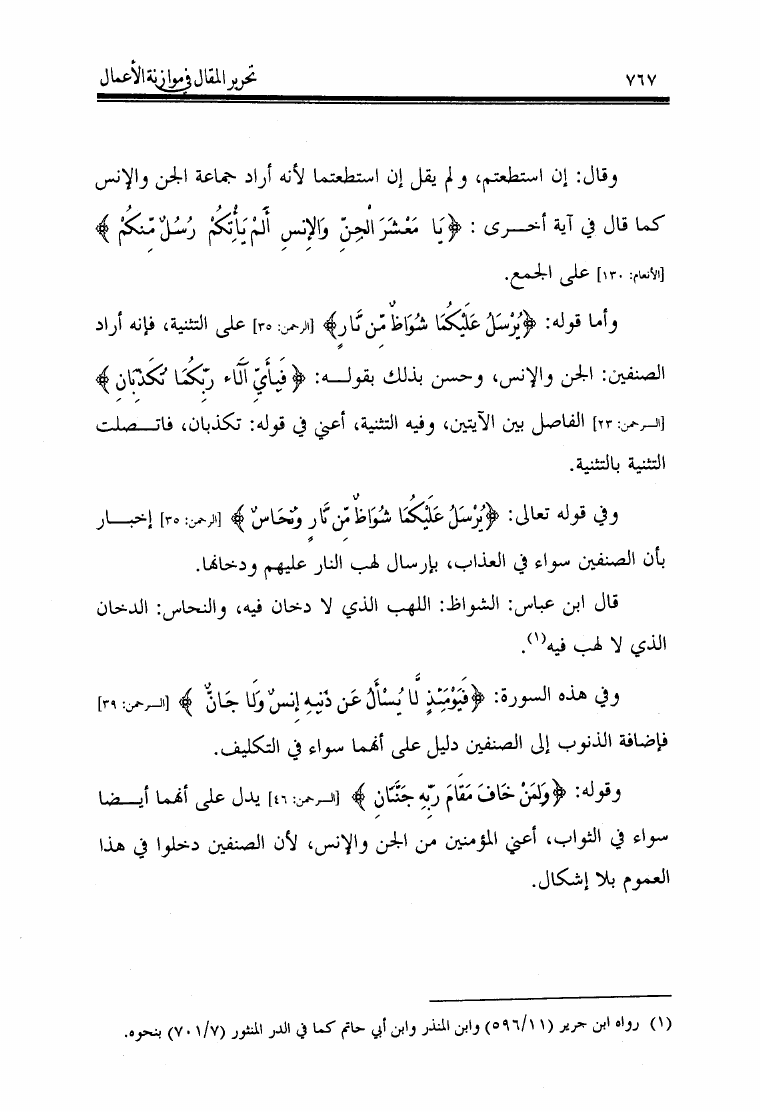 ٧٦٧ تحرير المقال في موازنة الأعمال
وقال: إن استطعتم، ولم يقل إن استطعتما لأنه أراد جماعة الجن والإنس
كما قال في آية أخـــرى : ﴿يَا مَعْشَرَ الْجِنِّ وَالإِنسِ أَلَمْ يَأْتِكُمْ رُسُلٌ مِّنكُمْ ﴾
[الأنعام: ١٣٠] على الجمع.
وأما قوله: ﴿يُرْسَلُ عَلَيْكُمَا شُوَاظٌ مِّن نَّارٍ﴾ [الرحمن: ٣٥] على التثنية، فإنه أراد
الصنفين: الجن والإنس، وحسن بذلك بقولـــه: ﴿ فَبِأَيِّ آلَاء رَبِّكُمَا تُكَذِّبَانِ ﴾
[الـرحمن: ٢٣] الفاصل بين الآيتين، وفيه التثنية، أعني في قوله: تكذبان، فاتـــصلت
التثنية بالتثنية.
وفي قوله تعالى: ﴿يُرْسَلُ عَلَيْكُمَا شُوَاظٌ مِّن نَّارٍ وَنُحَاسٌ ﴾ [الرحمن: ٣٥] إخبـــار
بأن الصنفين سواء في العذاب، بإرسال لهب النار عليهم ودخانها.
قال ابن عباس: الشواظ: اللهب الذي لا دخان فيه، والنحاس: الدخان
الذي لا لهب فيه(١).
وفي هذه السورة: ﴿فَيَوْمَئِذٍ لَّا يُسْأَلُ عَن ذَنبِهِ إِنسٌ وَلَا جَانٌّ ﴾ [الـــرحمن: ٣٩]
فإضافة الذنوب إلى الصنفين دليل على أنهما سواء في التكليف.
وقوله: ﴿وَلِمَنْ خَافَ مَقَامَ رَبِّهِ جَنَّتَانِ ﴾ [الـــرحمن: ٤٦] يدل على أنهما أيـــضا
سواء في الثواب، أعني المؤمنين من الجن والإنس، لأن الصنفين دخلوا في هذا
العموم بلا إشكال.
(١) رواه ابن جرير (٥٩٦/١١) وابن المنذر وابن أبي حاتم كما في الدر المنثور (٧٠١/٧) بنحوه.